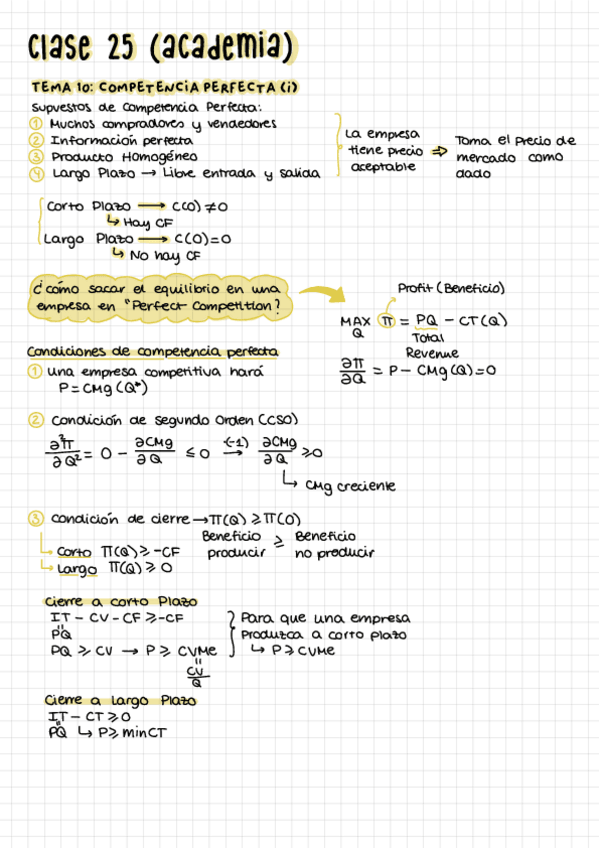 Clase 25 (academia)
TEMA 10: COMPETENCIA PERFECTA (i)
Supuestos de Competencia Perfecta:
① Muchos compradores y vendedores
② Información perfecta
③ Producto Homogéneo
④ Largo Plazo → Libre entrada y salida
La empresa
tiene precio ⇒
aceptable
Toma el precio de
mercado como
dado
Corto Plazo → C(0) ≠ 0
↳ Hay CF
Largo Plazo → C(0) = 0
↳ No hay CF
¿Cómo sacar el equilibrio en una
empresa en "Perfect Competition?
Profit (Beneficio)
MAX π = PQ - CT(Q)
Q
Total
Revenue
∂π/∂Q = P - CMg(Q) = 0
Condiciones de competencia perfecta
① Una empresa competitiva hará
P = CMg(Q*)
② Condición de segundo Orden (CSO)
∂²π/∂Q² = 0 - ∂CMg/∂Q ≤ 0 (-1)→ ∂CMg/∂Q ≥ 0
↳ CMg creciente
③ Condición de cierre → π(Q) ≥ π(0)
Beneficio producir ≥ Beneficio no producir
↳ Corto π(Q) ≥ -CF
↳ Largo π(Q) ≥ 0
Cierre a corto Plazo
IT - CV - CF ≥ -CF
"
PQ
PQ ≥ CV → P ≥ CVMe
"
CV/Q
Para que una empresa
Produzca a corto plazo
↳ P ≥ CVMe
Cierre a Largo Plazo
IT - CT ≥ 0
"
PQ ↳ P ≥ minCT